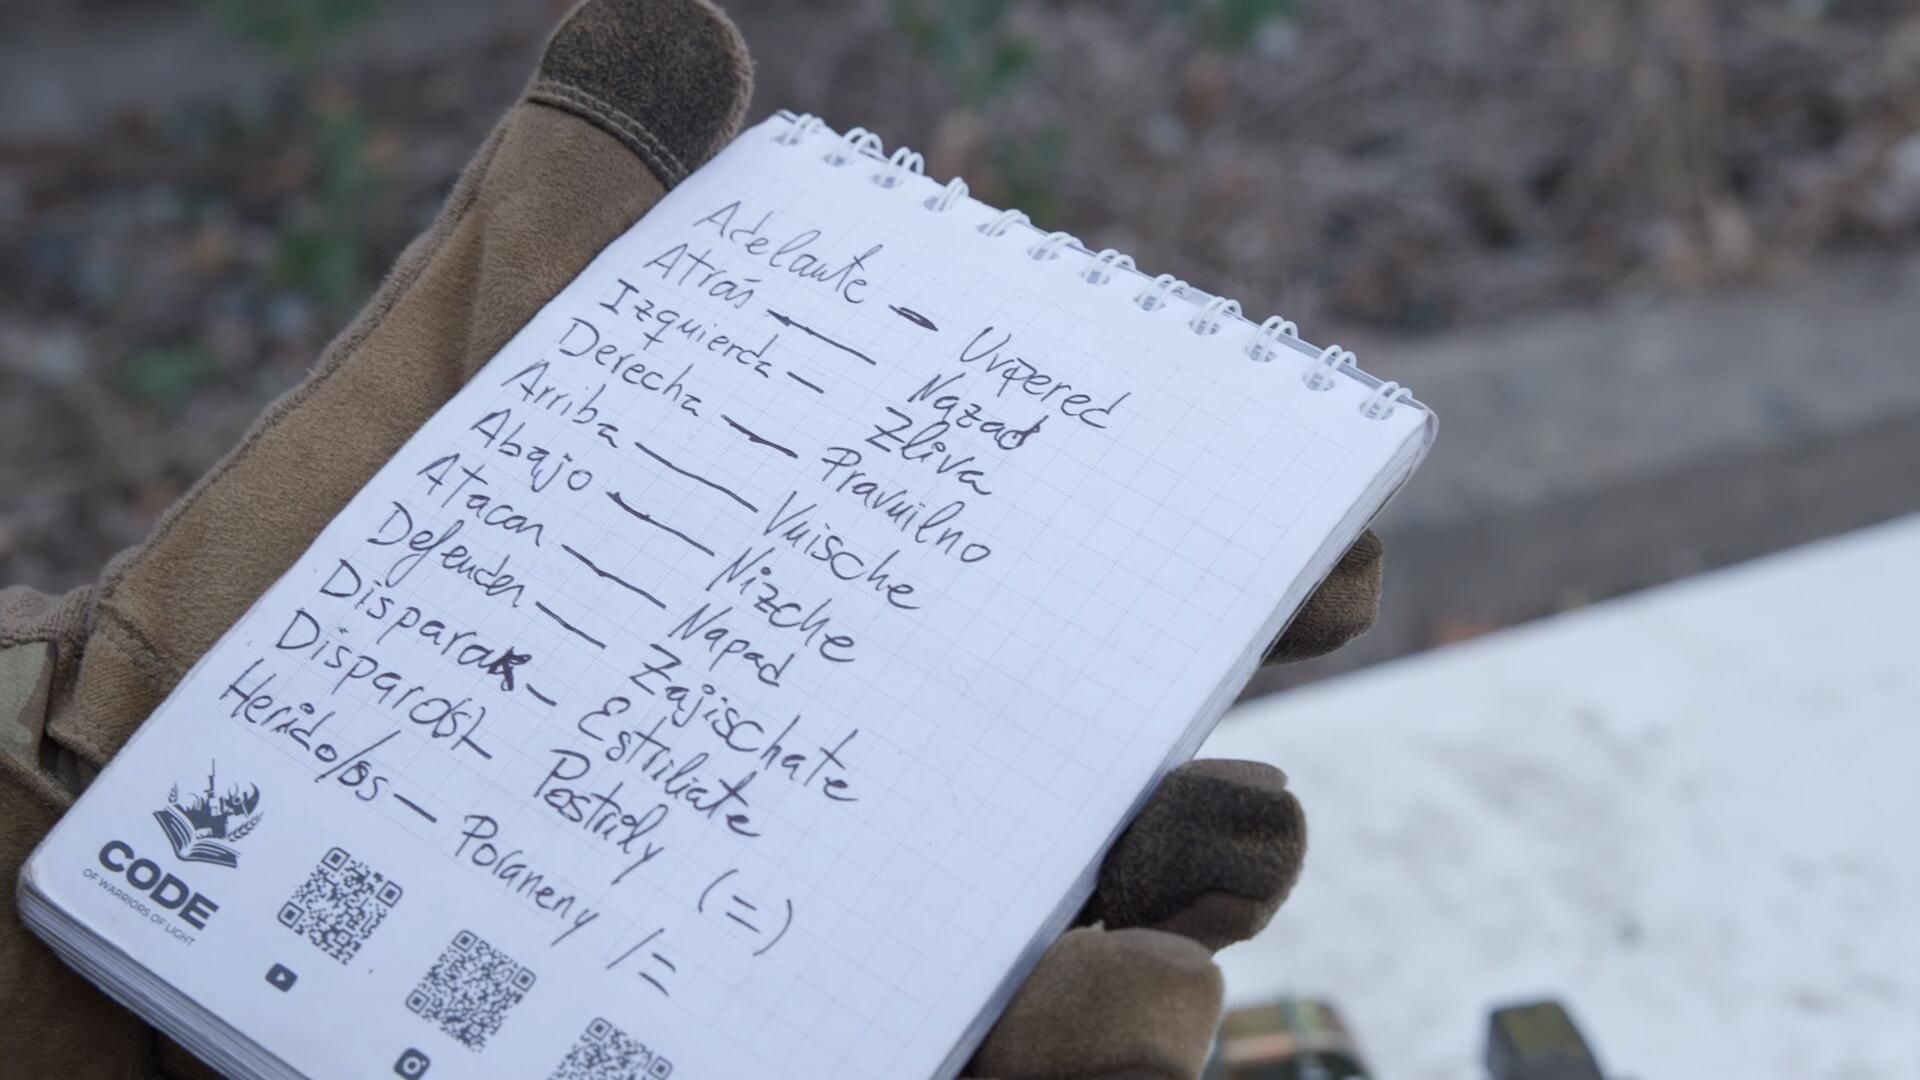 Adelante — Uvpered
Atrás — Nazad
Izquierda — Zliva
Derecha — Pravuilno
Arriba — Vuische
Abajo — Nizche
Atacar — Napad
Defender — Zajischate
Disparar — Estriliate
Disparo(s) — Postrily (=)
Herido/os — Poraneny /=
CODE
OF WARRIORS OF LIGHT